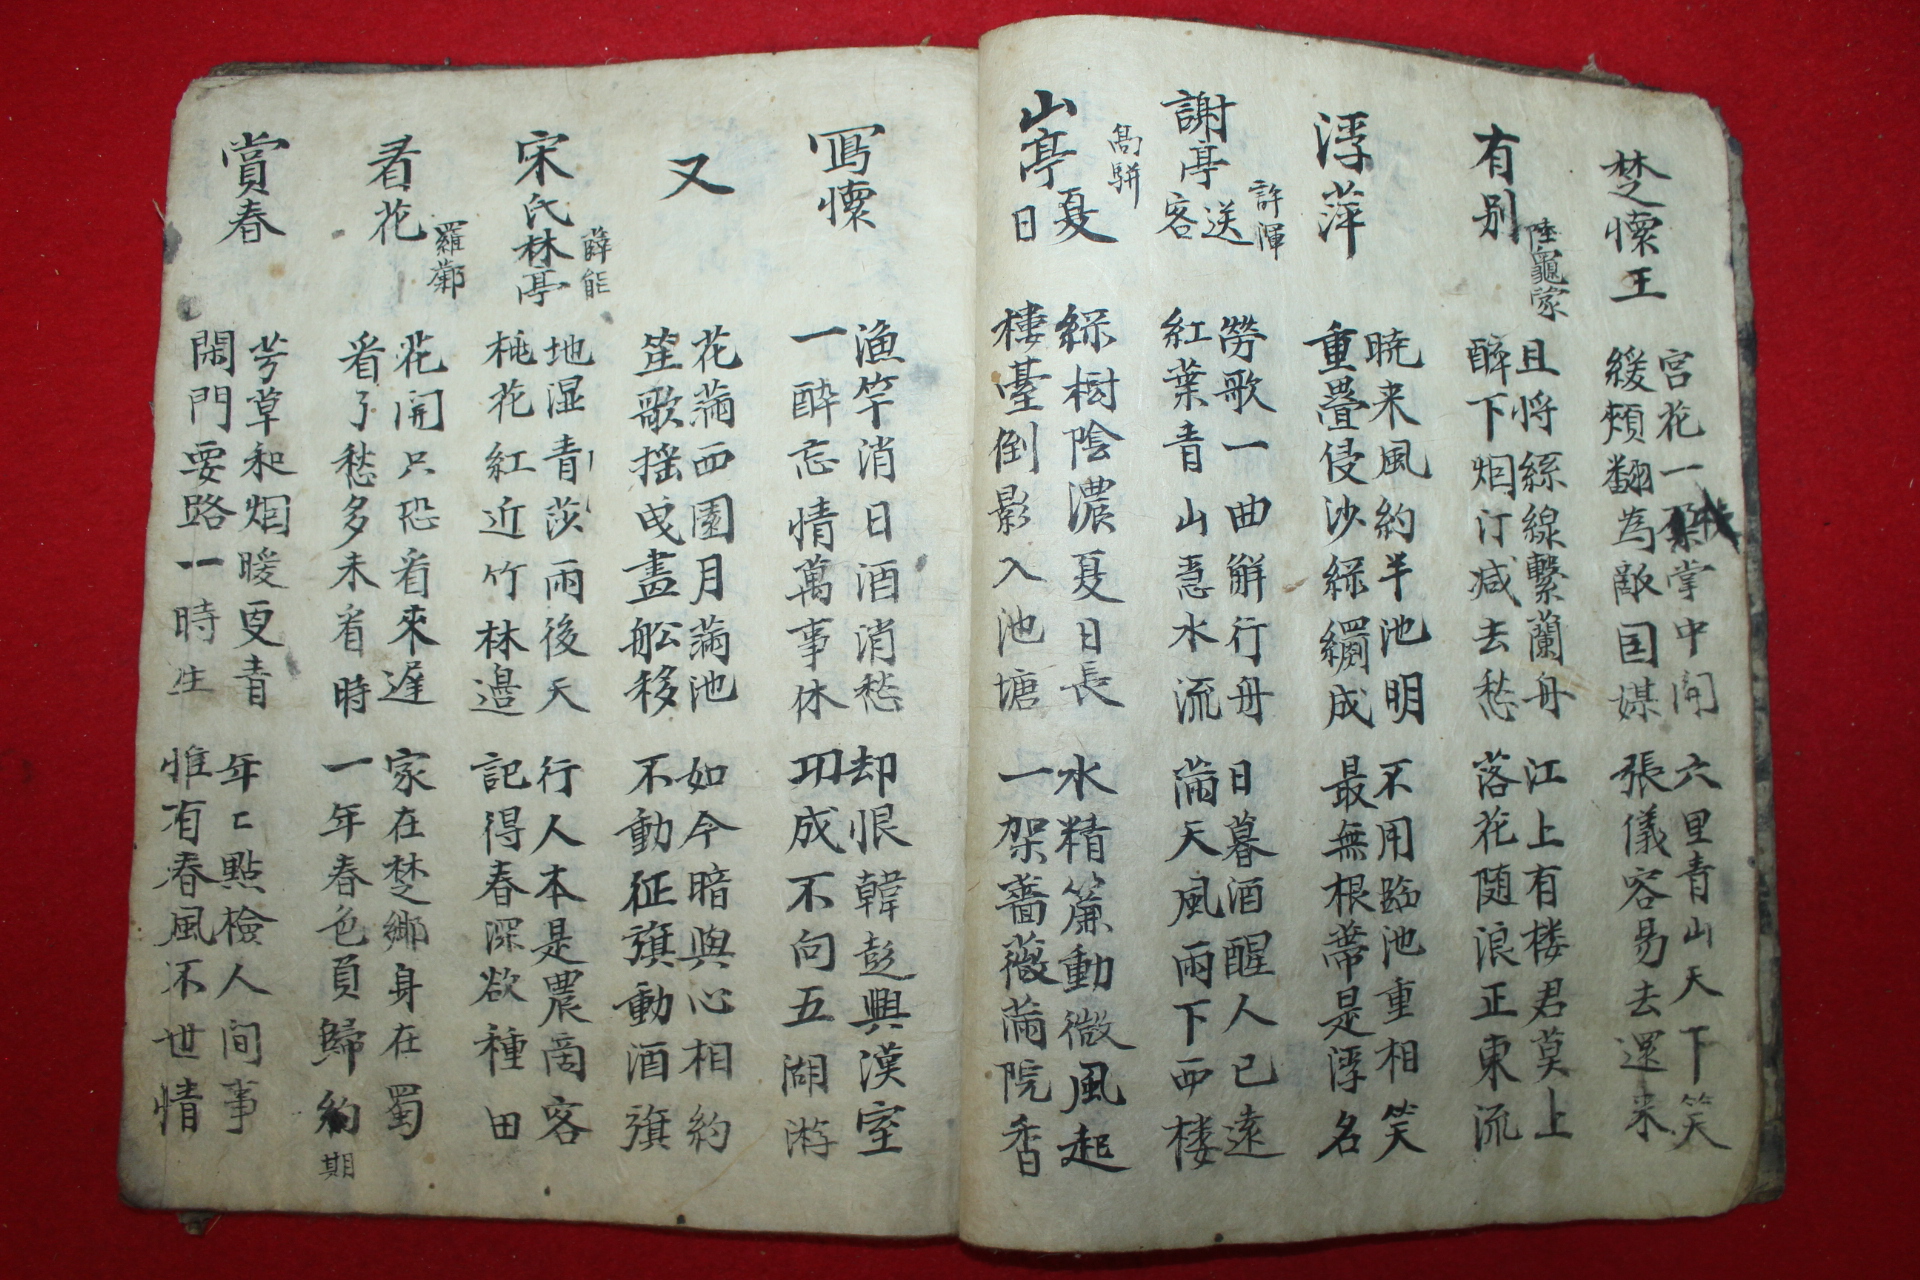 楚懷王
宮花一朶掌中開
緩頰翻為敵国媒
六里青山天下笑
張儀容易去還來
有别 陸龜蒙
且将絲線繫蘭舟
醉下烟汀减去愁
江上有楼君莫上
落花随浪正東流
浮萍
暁来風約半池明
重疊侵沙綠罽成
不用臨池重相笑
最無根蔕是浮名
謝亭送客 許渾
勞歌一曲解行舟
紅葉青山急水流
日暮酒醒人已遠
滿天風雨下西楼
山亭夏日 高騈
綠樹陰濃夏日長
樓臺倒影入池塘
水精簾動微風起
一架薔薇滿院香
寫懷
漁竿消日酒消愁
一酔忘情萬事休
却恨韓彭興漢室
功成不向五湖游
又
花滿西園月滿池
笙歌揺曳畫舩移
如今暗與心相約
不動征旗動酒旗
宋氏林亭 薛能
地湿青莎雨後天
桃花紅近竹林邉
行人本是農啇客
記得春深欲種田
看花 羅鄴
花開只恐看來遅
看了愁多未看時
家在楚鄉身在蜀
一年春色負歸約期
賞春
芳草和烟暖更青
閑門要路一時生
年〻點檢人间事
惟有春風不世情